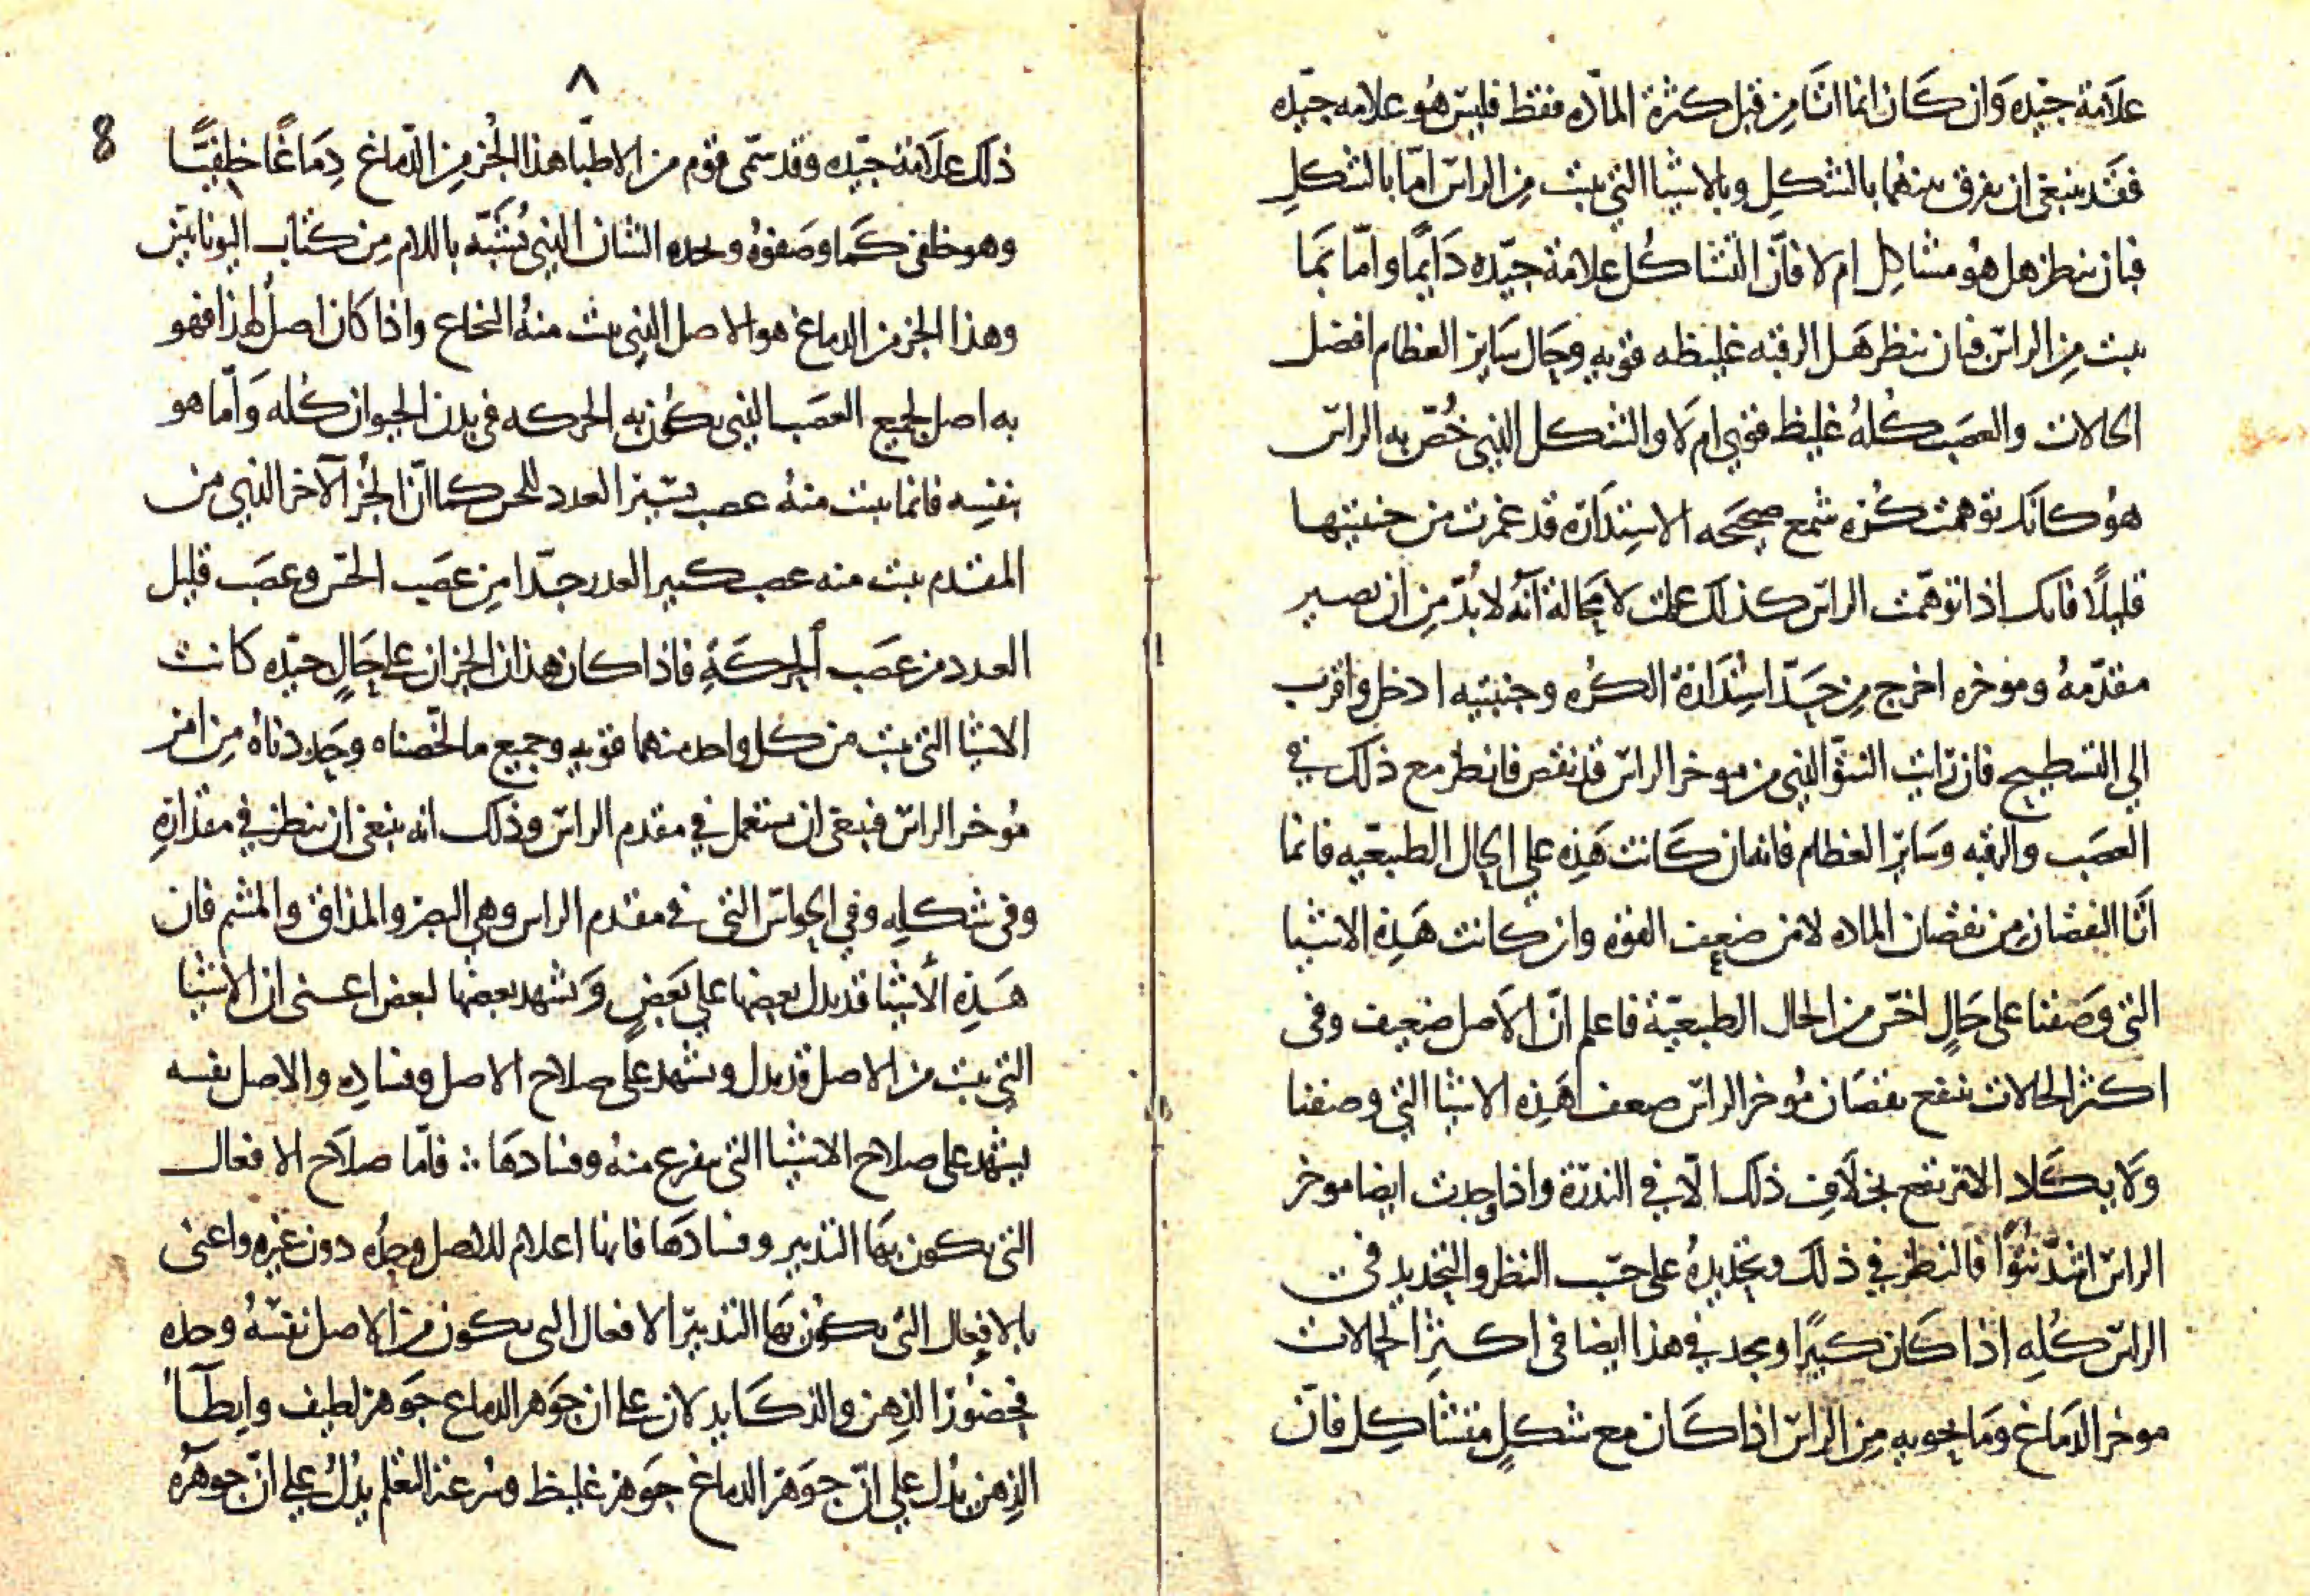 علامة جيده وان كان انما اتا من قبل كثرة الماده فقط فليس هو علامه جيده
فقد ينبغى ان يفرق بينهما بالشكل وبالاشيا التي ينبت من الراس اما بالشكل
فبان ينظر هل هو مشاكل ام لا فان التشاكل علامة جيده دايما واما بما
ينبت من الراس فبان ينظر هل الرقبه غليظه قويه وحال ساير العظام افضل
الحالات والعصب كله غليظ قوي ام لا والشكل الذي خص به الراس
هو كانك توهمت كره شمع صحيحه الاستداره قد غمزت من جنبتيها
قليلا فانك اذا توهمت الراس كذلك علمت لا محالة انه لا بد من ان يصير
مقدمه وموخره اخرج من حد استدارة الكره وجنبتيه ادخل واقرب
الي التسطيح فان رايت النتو الذي من موخر الراس قد نقص فانظر مع ذلك في
العصب والرقبه وساير العظام فانه ان كانت هذه علي الحال الطبيعيه فانما
اتا النقصان من نقصان الماده لا من ضعف القوه وان كانت هذه الاشيا
التي وصفنا على حال اخس من الحال الطبيعية فاعلم ان الاصل ضعيف وفى
اكثر الحالات يتبع نقصان موخر الراس ضعف هذه الاشيا التي وصفنا
ولا يكاد الامر يقع بخلاف ذلك الا في الندرة واذا وجدت ايضا موخر
الراس اشد نتوا فالنظر في ذلك وتحديده على حسب النظر والتحديد في
الراس كله اذا كان كبيرا ويجد في هذا ايضا فى اكثر الحالات
موخر الدماغ وما يحويه من الراس اذا كان مع شكل متشاكل فان
٨
8
ذلك علامة جيده وقد سمى قوم من الاطبا هذا الجز من الدماغ دماغا خلفيا
وهو خلفى كما وصفوه وحده الشان الذي يشبه باللام من كتاب اليونانيين
وهذا الجز من الدماغ هو الاصل الذي ينبت منه النخاع واذا كان اصل لهذا فهو
به اصل لجميع العصب الذي يكون به الحركه في بدن الحيوان كله واما هو
بنفسه فانما ينبت منه عصب يسير العدد للحس كما ان الجز الآخر الذي من
المقدم ينبت منه عصب كبير العدد جدا من عصب الحس وعصب قليل
العدد من عصب الحركة فاذا كان هذان الجزان على حال جيده كانت
الاشيا التي ينبت من كل واحد منهما قويه وجميع ما لخصناه وحددناه من امر
موخر الراس فينبغى ان يستعمل في مقدم الراس وذلك انه ينبغى ان ينظر في مقداره
وفى شكله وفي الحواس التي في مقدم الراس وهي البصر والمذاق والمشم فان
هذه الأشيا قد يدل بعضها علي بعض ويشهد بعضها لبعض اعنى ان الاشيا
التي ينبت من الاصل قد يدل ويشهد على صلاح الاصل وفساده والاصل نفسه
يشهد على صلاح الاشيا التي يتفرع منه وفسادها ؞ فاما صلاح الافعال
التى يكون بها التدبير وفسادها فانها اعلام للاصل وحده دون غيره واعنى
بالافعال التى يكون بها التدبير الافعال التى يكون من الاصل نفسه وحده
فحضور الذهن والذكا يدلان على ان جوهر الدماغ جوهر لطيف وابطآ
الذهن يدل علي ان جوهر الدماغ جوهر غليظ وسرعة التعلم يدل علي ان جوهره